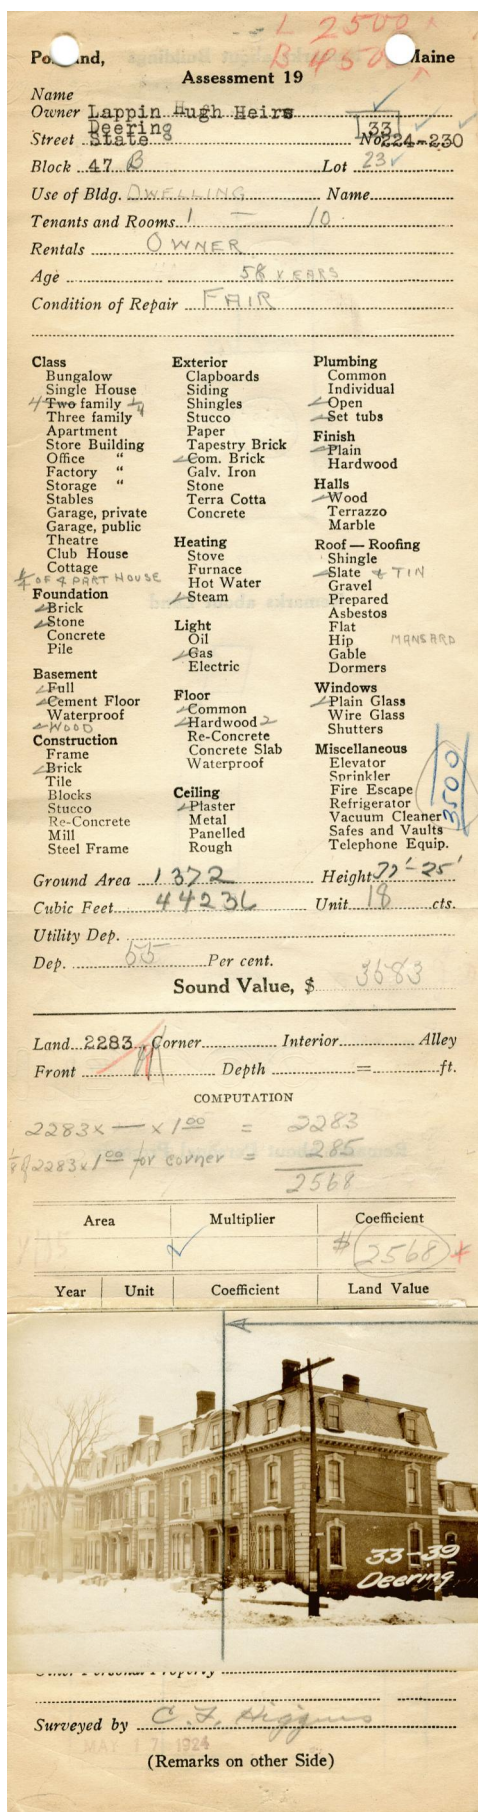 L 2500
B 4500
Portland, Maine
Assessment 19
Name
Owner Lappin Hugh Heirs
Deering 33
Street State No. 224-230
Block 47 B Lot 23
Use of Bldg. DWELLING Name
Tenants and Rooms 1 — 10
Rentals OWNER
Age 58 YEARS
Condition of Repair FAIR
Class
Bungalow
Single House
Two family
Three family
Apartment
Store Building
Office "
Factory "
Storage "
Stables
Garage, private
Garage, public
Theatre
Club House
Cottage
1/4 OF 4 PART HOUSE
Foundation
Brick
Stone
Concrete
Pile
Basement
Full
Cement Floor
Waterproof
WOOD
Construction
Frame
Brick
Tile
Blocks
Stucco
Re-Concrete
Mill
Steel Frame
Exterior
Clapboards
Siding
Shingles
Stucco
Paper
Tapestry Brick
Com. Brick
Galv. Iron
Stone
Terra Cotta
Concrete
Heating
Stove
Furnace
Hot Water
Steam
Light
Oil
Gas
Electric
Floor
Common
Hardwood 2
Re-Concrete
Concrete Slab
Waterproof
Ceiling
Plaster
Metal
Panelled
Rough
Plumbing
Common
Individual
Open
Set tubs
Finish
Plain
Hardwood
Halls
Wood
Terrazzo
Marble
Roof — Roofing
Shingle
Slate & TIN
Gravel
Prepared
Asbestos
Flat
Hip MANSARD
Gable
Dormers
Windows
Plain Glass
Wire Glass
Shutters
Miscellaneous
Elevator
Sprinkler
Fire Escape
Refrigerator
Vacuum Cleaner
Safes and Vaults
Telephone Equip.
3500
Ground Area 1372 Height
Cubic Feet 44236 Unit 18 cts.
Utility Dep.
Dep. 55 Per cent.
Sound Value, $ 3583
Land 2283 Corner Interior Alley
Front Depth = ft.
COMPUTATION
2283 x — x 1 00 = 2283
1/8 of 2283 x 1 00 for corner = 285
2568
Area Multiplier Coefficient
$ 2568 *
Year Unit Coefficient Land Value
33-39
Deering
Other Personal Property
Surveyed by C. F. Higgins
MAY 17 1924
(Remarks on other Side)